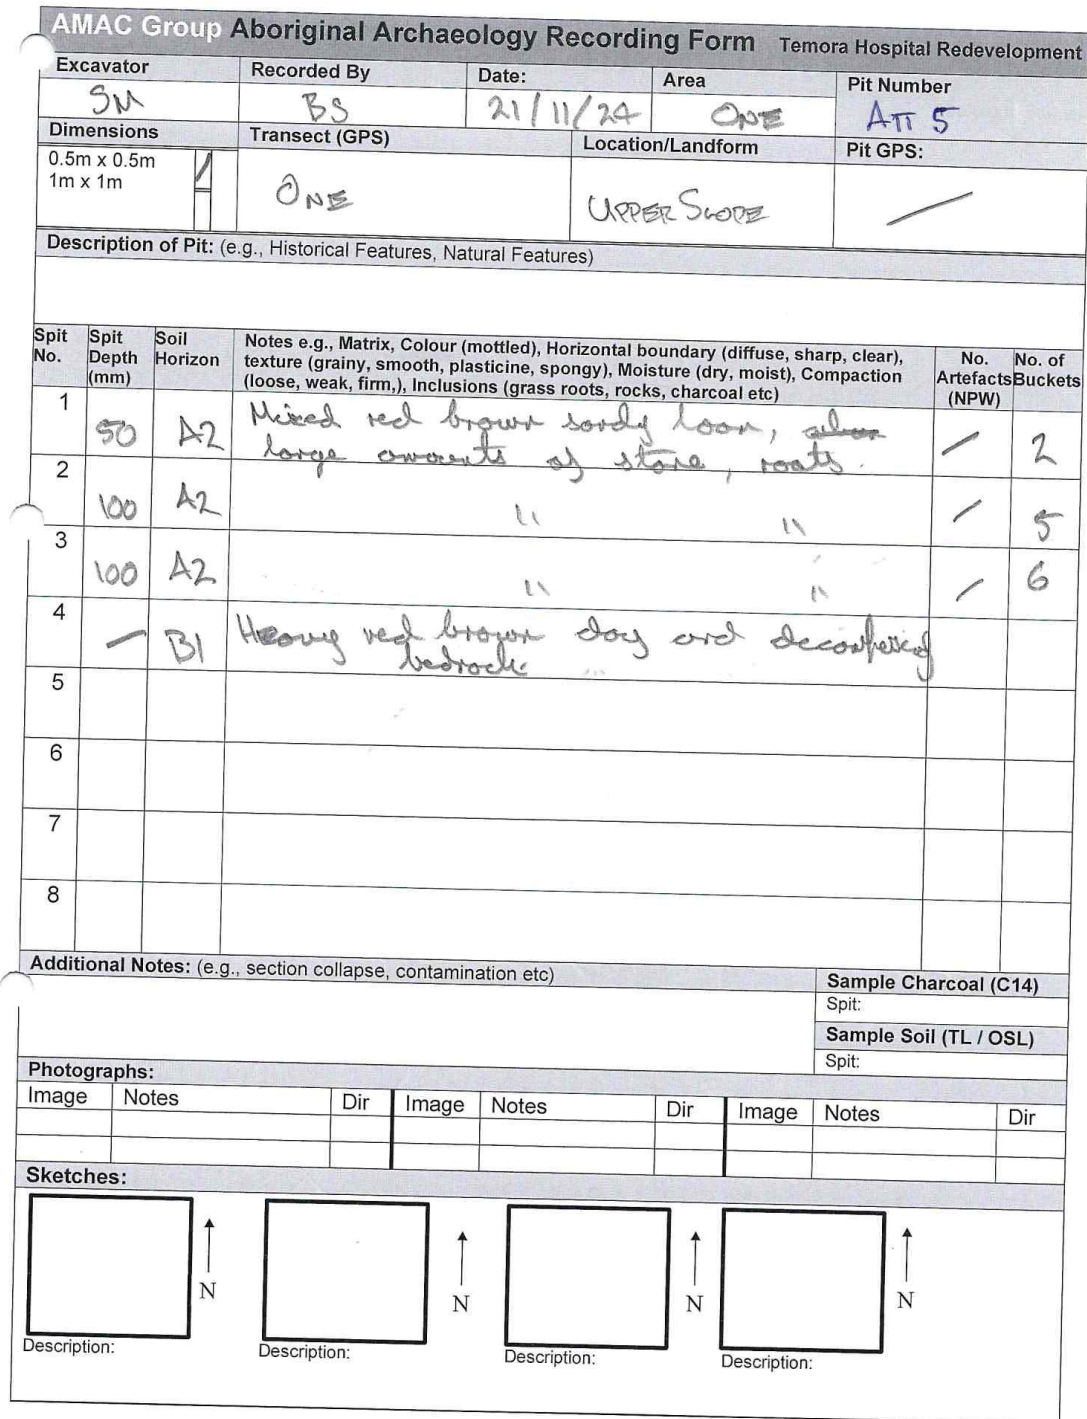 AMAC Group Aboriginal Archaeology Recording Form Temora Hospital Redevelopment
Excavator Recorded By Date: Area Pit Number
SM BS 21/11/24 ONE ATT 5
Dimensions Transect (GPS) Location/Landform Pit GPS:
0.5m x 0.5m /
1m x 1m
ONE UPPER SLOPE /
Description of Pit: (e.g., Historical Features, Natural Features)
Spit No. Spit Depth (mm) Soil Horizon Notes e.g., Matrix, Colour (mottled), Horizontal boundary (diffuse, sharp, clear), texture (grainy, smooth, plasticine, spongy), Moisture (dry, moist), Compaction (loose, weak, firm,), Inclusions (grass roots, rocks, charcoal etc) No. Artefacts (NPW) No. of Buckets
1 50 A2 Mixed red brown sandy loam,
large amounts of stone, roots. / 2
2 100 A2 " " / 5
3 100 A2 " " / 6
4 – B1 Heavy red brown clay and decomposing
bedrock.
5
6
7
8
Additional Notes: (e.g., section collapse, contamination etc)
Sample Charcoal (C14)
Spit:
Sample Soil (TL / OSL)
Spit:
Photographs:
Image Notes Dir Image Notes Dir Image Notes Dir
Sketches:
N N N N
Description: Description: Description: Description: